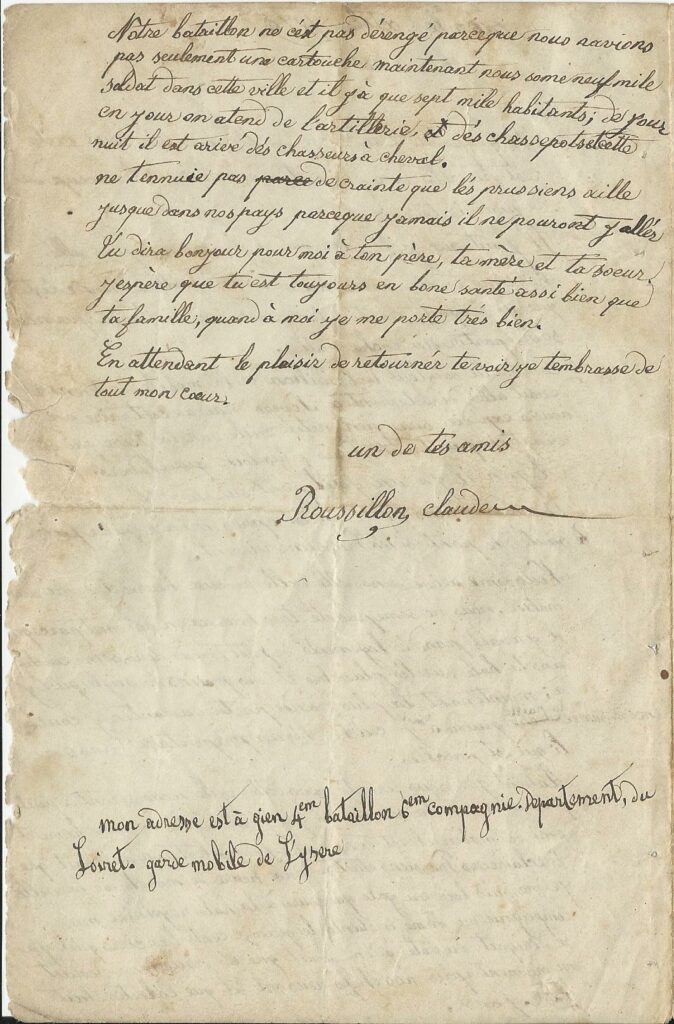 Notre bataillon ne c'est pas dérengé parceque nous navions
pas seulement une cartouche maintenant nous some neuf mile
soldat dans cette ville et il y à que sept mile habitants; de jour
en jour on atend de l'artillerie, et dés chassepots et cette
nuit il est arivé dés chasseurs à cheval.
ne tennuie pas parce de crainte que lés prussiens aille
jusque dans nos pays parceque jamais il ne pouront y allér
Tu dira bonjour pour moi à ton père, ta mère et ta soeur,
jespère que tu est toujours en bone santé assi bien que
ta famille, quand à moi je me porte trés bien.
En attendant le plaisir de retournér te voir je tembrasse de
tout mon cœur.
un de tés amis
Roussillon claude
mon adresse est à gien 4em bataillon 6em compagnie. Departement, du
Loiret. garde mobile de L'ysere